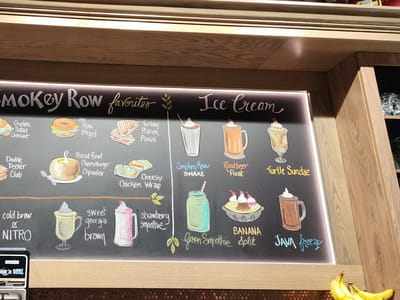 SMOKEY ROW favorites
Chicken
Salad
Croissant
Row
Bagel
Turkey
Bacon
Panini
Double
Decker
Club
Bread Bowl
Cheeseburger
Chowder
Cheesy
Chicken Wrap
cold brew
or
NITRO
sweet
georgia
brown
strawberry
smoothie
Ice Cream
Smokey Row
SHAKE
Root Beer
Float
Turtle Sundae
Green Smoothie
BANANA
Split
JAVA freeze